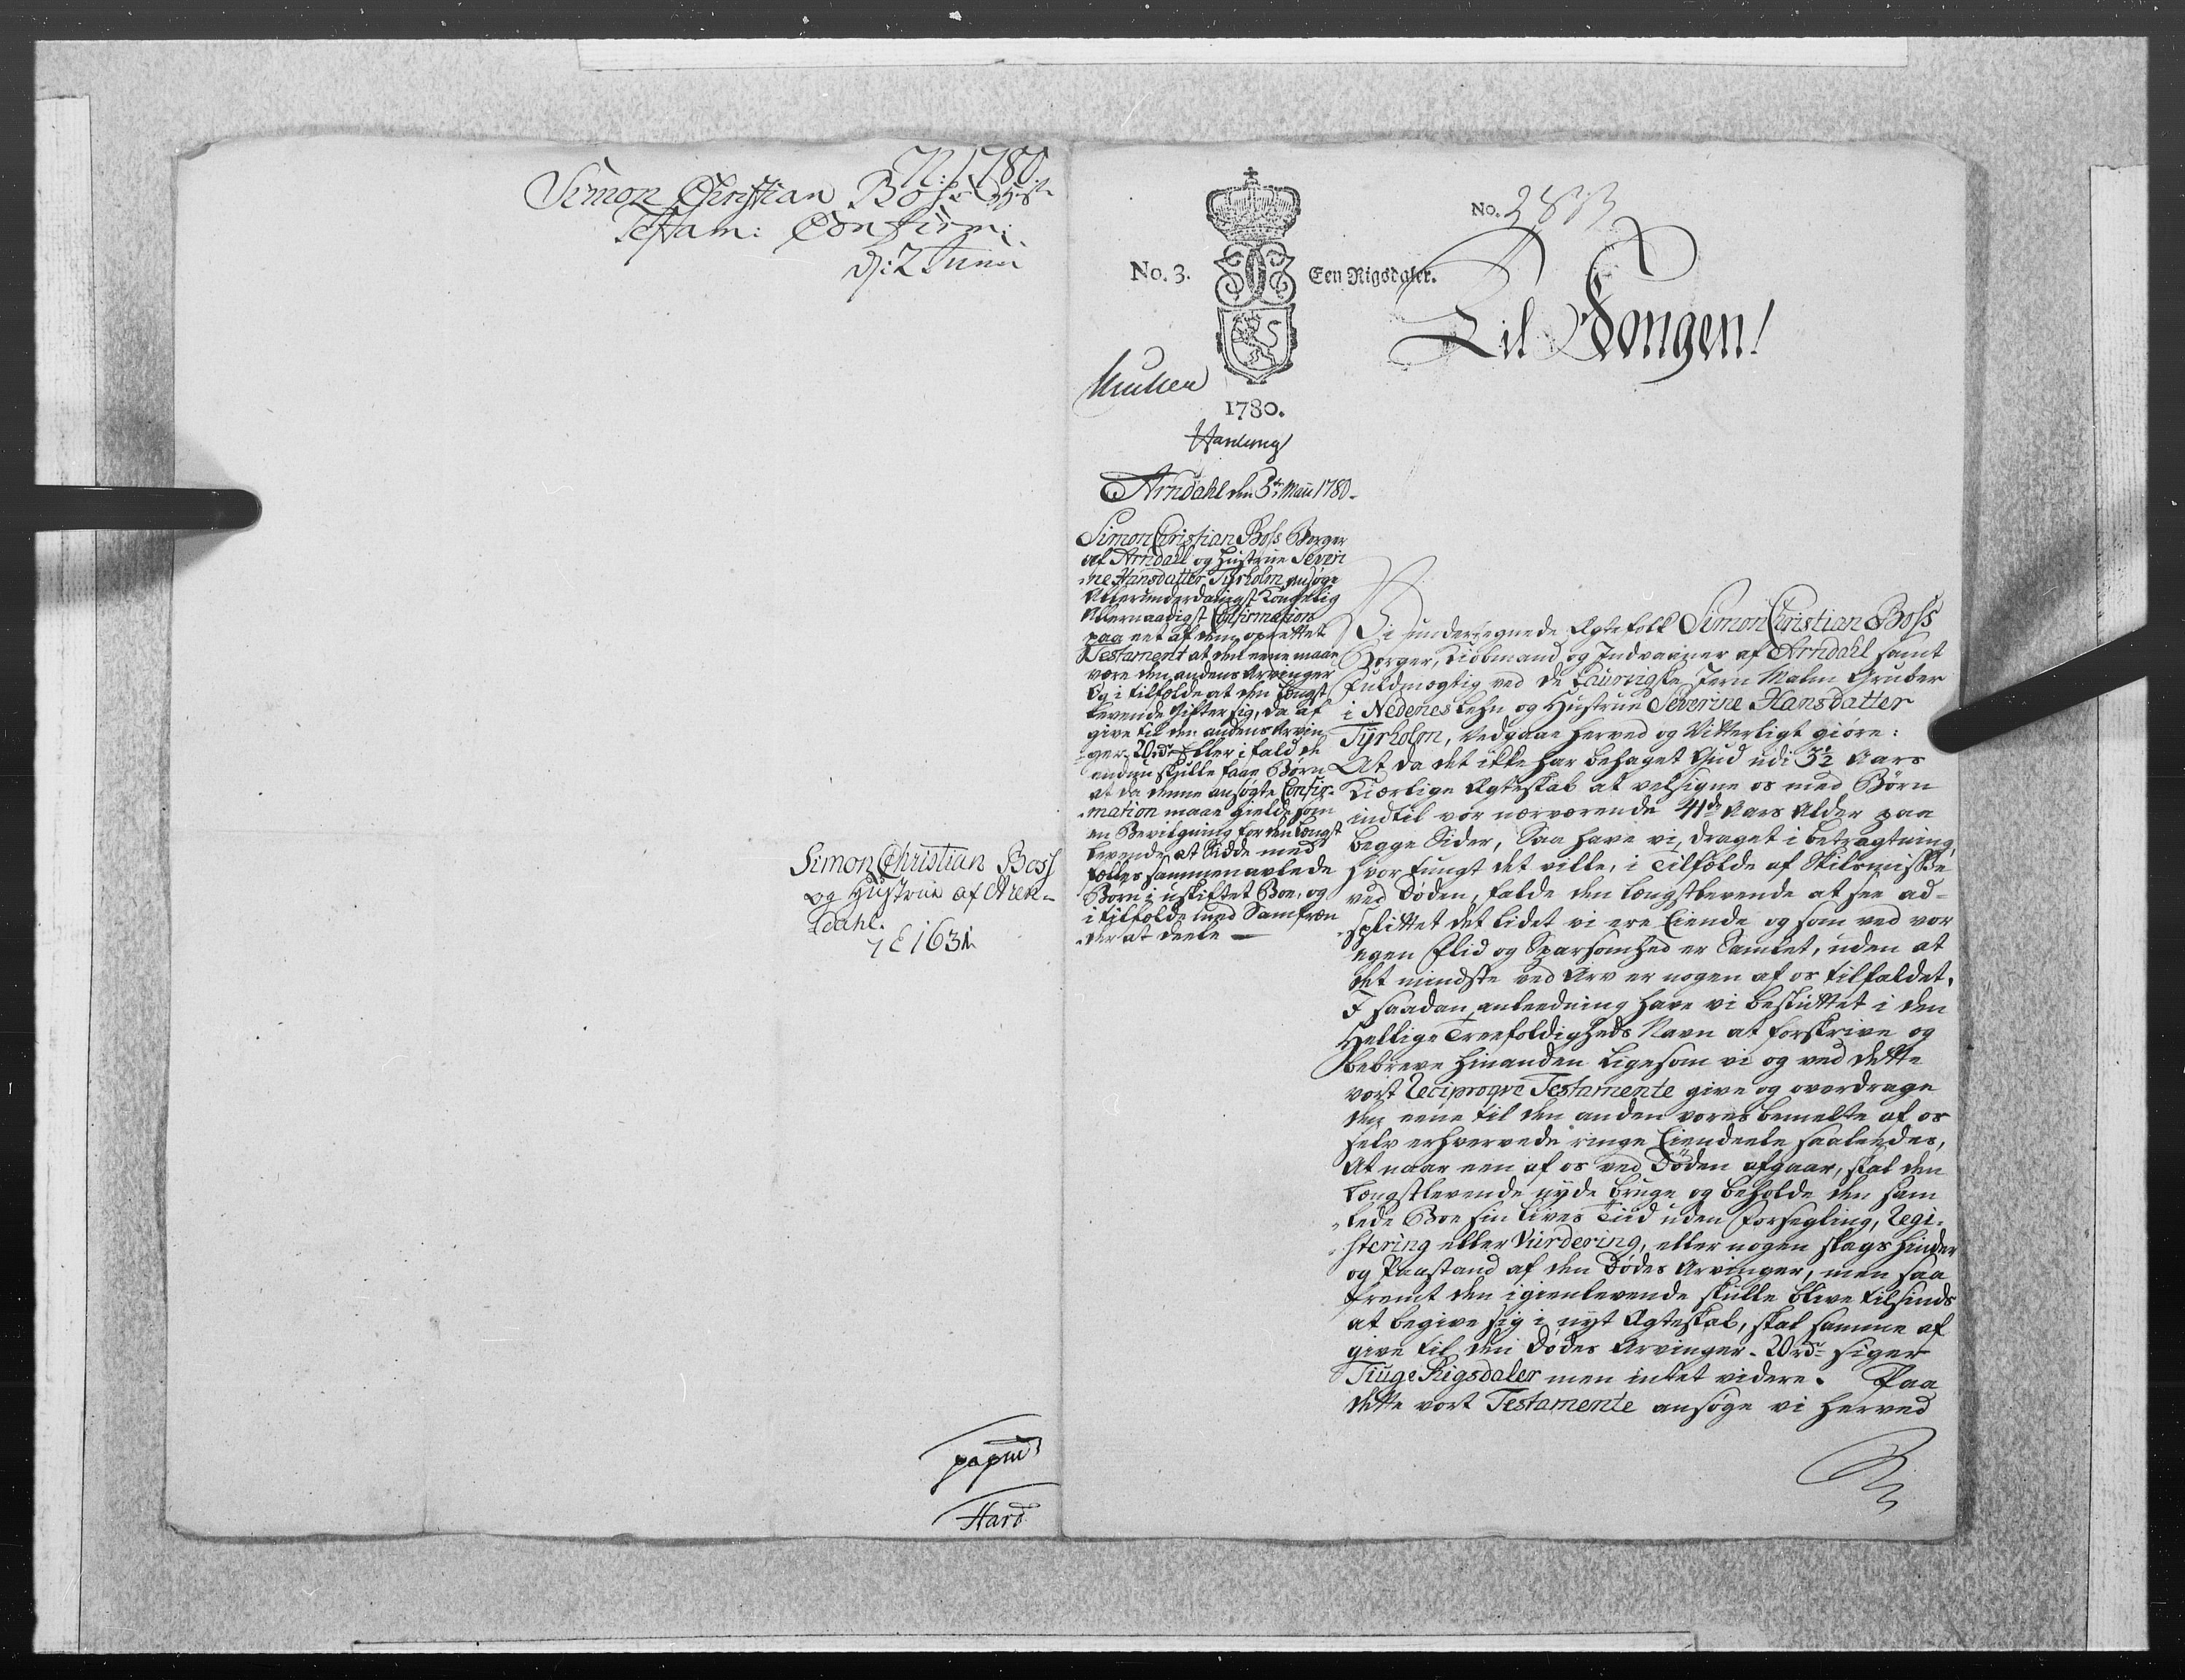 N: 1780.
Simon Christian Boss & Hust:
Testam: Confirm:
D: 2 Junii
Simon Christian Boss
og Hustrue af Aren-
dahl.
7 E 163
papiir
Hard
No. 283
No. 3.
Een Rigsdaler.
Til Kongen!
1780.
Arndahl den 3de Maii 1780.
Simon Christian Boss Borger
af Arndahl og Hustrue Severi
-ne Hansdatter Tyrholm ansøge
Allerunderdanigst Kongelig
Allernaadigst Confirmation
paa eet af dem oprettet
Testament at den eene maae
være den andens Arvinger
Og i tilfælde at den længst
levende gifter sig, da af
give til den andens Arvin
-ger 20rdr Eller i fald de
endnu skulle faae Børn
at da denne ansøgte Confir-
-mation maae gielde som
en Bevilgning for den længst
levende at sidde med
fælles sammenavlede
Børn i uskiftet Boe, og
i tilfælde med Samfræn
-der at deele —
Vi undertegnede Ægtefolk Simon Christian Boss
Borger, Kiøbmand og Indvaaner af Arndahl samt
Fuldmægtig ved de Laurvigske Jern Malm Gruber
i Nedenes Lehn og Hustrue Severine Hansdatter
Tyrholm, Vedgaae herved og Vitterligt giøre:
At da det ikke har behaget Gud udi 3½ Aars
Kiærlige Ægteskab at velsigne os med Børn
indtil vor nærværende 41de Aars Alder paa
begge Sider, Saa have vi draget i betragtning,
hvor tungt det ville, i Tilfælde af Skilsmisse
ved Døden, falde den længstlevende at see ad-
-splittet det lidet vi ere Eiende og som ved vor
egen Flid og Sparsomhed er Samlet, uden at
det mindste ved Arv er nogen af os tilfaldet.
I saadan anleedning have vi besluttet i den
Hellige Treefoldigheds Navn at forskrive og
bebreve hinanden ligesom vi og ved dette
vort Reciproqve Testamente give og overdrage
den eene til den anden vores bemelte af os
selv erhvervede ringe Eiendeele saaleedes,
At naar een af os ved Døden afgaar, skal den
længstlevende nyde bruge og beholde den sam
-lede Boe sin Lives Tiid uden Forsegling, Regi-
-stering eller Vurdering, eller nogen slags hinder
og Paastand af den Dødes Arvinger, men saa
fremt den igienlevende skulle blive tilsinds
at begive sig i nyt Ægteskab, skal samme af
give til den Dødes Arvinger 20rdr siger
Tiuge Rigsdaler men intet videre. Paa
dette vort Testamente ansøge vi herved